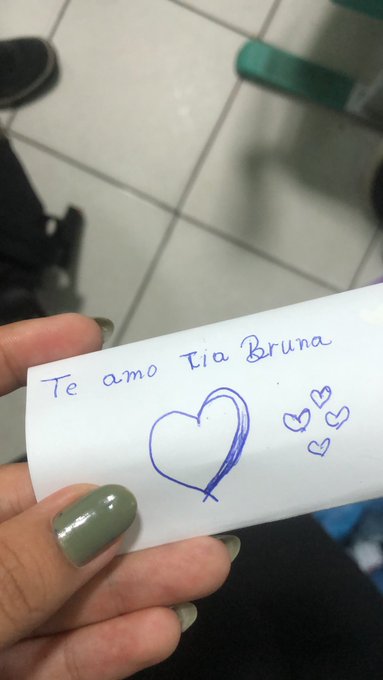 Te amo Tia Bruna